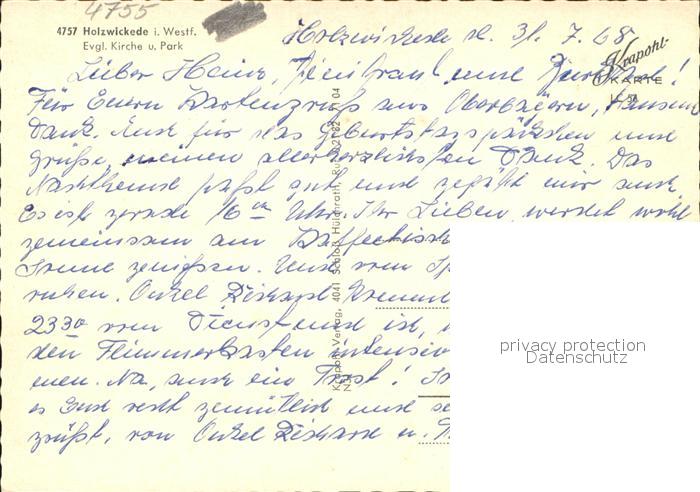 4755
4757 Holzwickede i. Westf.
Evgl. Kirche u. Park
Holzwickede d. 31. 7. 68
Krapohl-
KARTE
Lieber Heinz, und
Für Euern Kartengruß aus Oberbayern, tausend
Dank. Auch für das Geburtstagspäckchen und
Grüße, meinen allerherzlichsten Dank. Das
Nachthemd paßt gut und gefällt mir auch
Es ist gerade 16 Uhr. Ihr Lieben werdet wohl
gemeinsam am Kaffeetisch
Sonne genießen. Und vom
ruhen. Onkel Richard kommt
2330 vom Dienst und ist,
den Flimmerkasten intensiv
men. Na, auch ein Trost!
es Euch recht gemütlich und
grüßt, von Onkel Richard u.
Krapohl-Verlag, 4041 Schloß Hülchrath, Ruf
privacy protection
Datenschutz